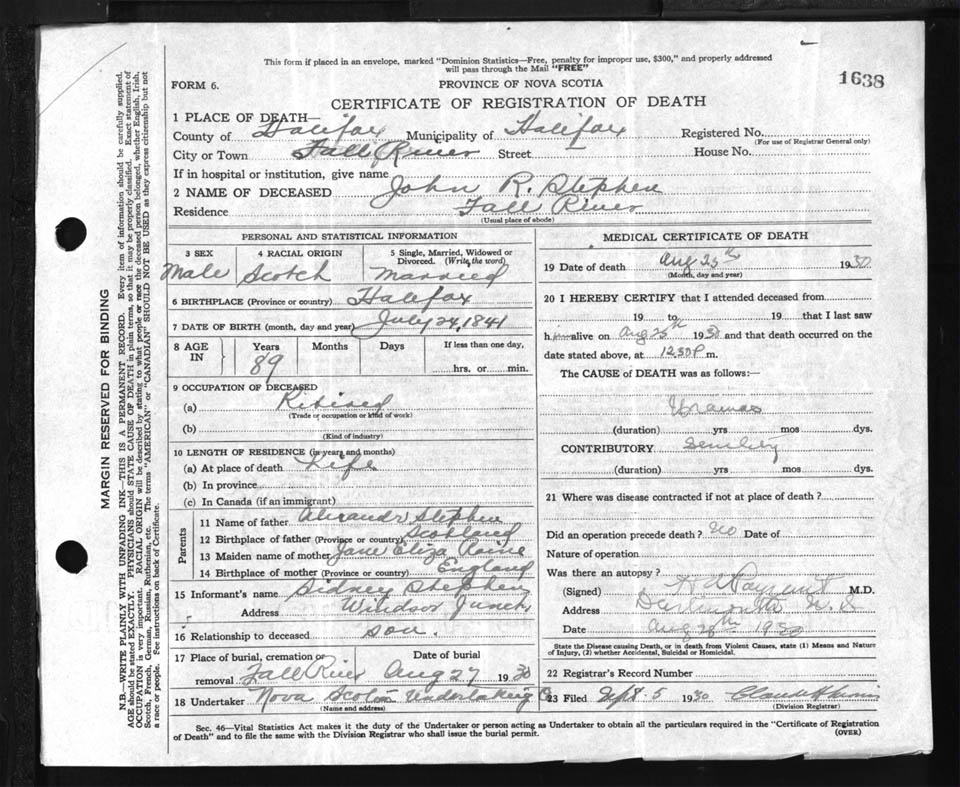 This form if placed in an envelope, marked "Dominion Statistics—Free, penalty for improper use, $300," and properly addressed
will pass through the Mail "FREE"
1638
FORM 6.
PROVINCE OF NOVA SCOTIA
CERTIFICATE OF REGISTRATION OF DEATH
1 PLACE OF DEATH—
County of Halifax Municipality of Halifax Registered No.
(For use of Registrar General only)
City or Town Fall River Street House No.
If in hospital or institution, give name
2 NAME OF DECEASED John R. Stephen
Residence Fall River
(Usual place of abode)
PERSONAL AND STATISTICAL INFORMATION
3 SEX 4 RACIAL ORIGIN 5 Single, Married, Widowed or
Divorced. (Write the word)
Male Scotch Married
6 BIRTHPLACE (Province or country) Halifax
7 DATE OF BIRTH (month, day and year) July 24, 1841
8 AGE IN Years Months Days If less than one day,
89 hrs. or min.
9 OCCUPATION OF DECEASED
(a) Retired
(Trade or occupation or kind of work)
(b)
(Kind of industry)
10 LENGTH OF RESIDENCE (in years and months)
(a) At place of death Life
(b) In province
(c) In Canada (if an immigrant)
Parents
11 Name of father Stephen
12 Birthplace of father (Province or country) Scotland
13 Maiden name of mother Jane Eliza
14 Birthplace of mother (Province or country) England
15 Informant's name Sidney Stephen
Address Windsor Junct.
16 Relationship to deceased son.
17 Place of burial, cremation or Date of burial
removal Fall River Aug 27 1930
18 Undertaker Nova Scotia Undertaking Co
(Name and address)
MEDICAL CERTIFICATE OF DEATH
19 Date of death Aug 25th 1930
(Month, day and year)
20 I HEREBY CERTIFY that I attended deceased from
19 to 19 that I last saw
him alive on Aug 25th 1930 and that death occurred on the
date stated above, at 12.30 P m.
The CAUSE of DEATH was as follows:—
(duration) yrs mos dys.
CONTRIBUTORY Senility
(duration) yrs mos dys.
21 Where was disease contracted if not at place of death?
Did an operation precede death? No Date of
Nature of operation
Was there an autopsy?
(Signed) M.D.
Address Dartmouth N.S
Date Aug 28th 1930
State the Disease causing Death, or in death from Violent Causes, state (1) Means and Nature
of Injury, (2) whether Accidental, Suicidal or Homicidal.
22 Registrar's Record Number
23 Filed Sept. 5 1930
(Division Registrar)
Sec. 46—Vital Statistics Act makes it the duty of the Undertaker or person acting as Undertaker to obtain all the particulars required in the "Certificate of Registration
of Death" and to file the same with the Division Registrar who shall issue the burial permit.
(OVER)
MARGIN RESERVED FOR BINDING
N.B.—WRITE PLAINLY WITH UNFADING INK—THIS IS A PERMANENT RECORD. Every item of information should be carefully supplied.
AGE should be stated EXACTLY. PHYSICIANS should STATE CAUSE OF DEATH in plain terms, so that it may be properly classified. Exact statement of
OCCUPATION is very important. RACIAL ORIGIN will be described by stating to what people or race the deceased person belonged, whether English, Irish,
Scotch, French, German, Russian, Ruthenian, etc. The terms "AMERICAN" or "CANADIAN" SHOULD NOT BE USED as they express citizenship but not
a race or people. See instructions on back of Certificate.